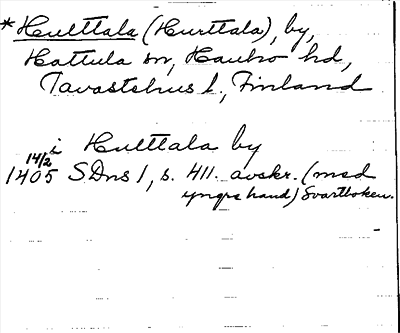 *Hulttala (Hurttala), by,
Hattula sn, Hauho hd,
Tavastehus l., Finland
i Hulttala by
14/2
1405 SDns 1, s. 411. avskr. (med
yngre hand) Svartboken.